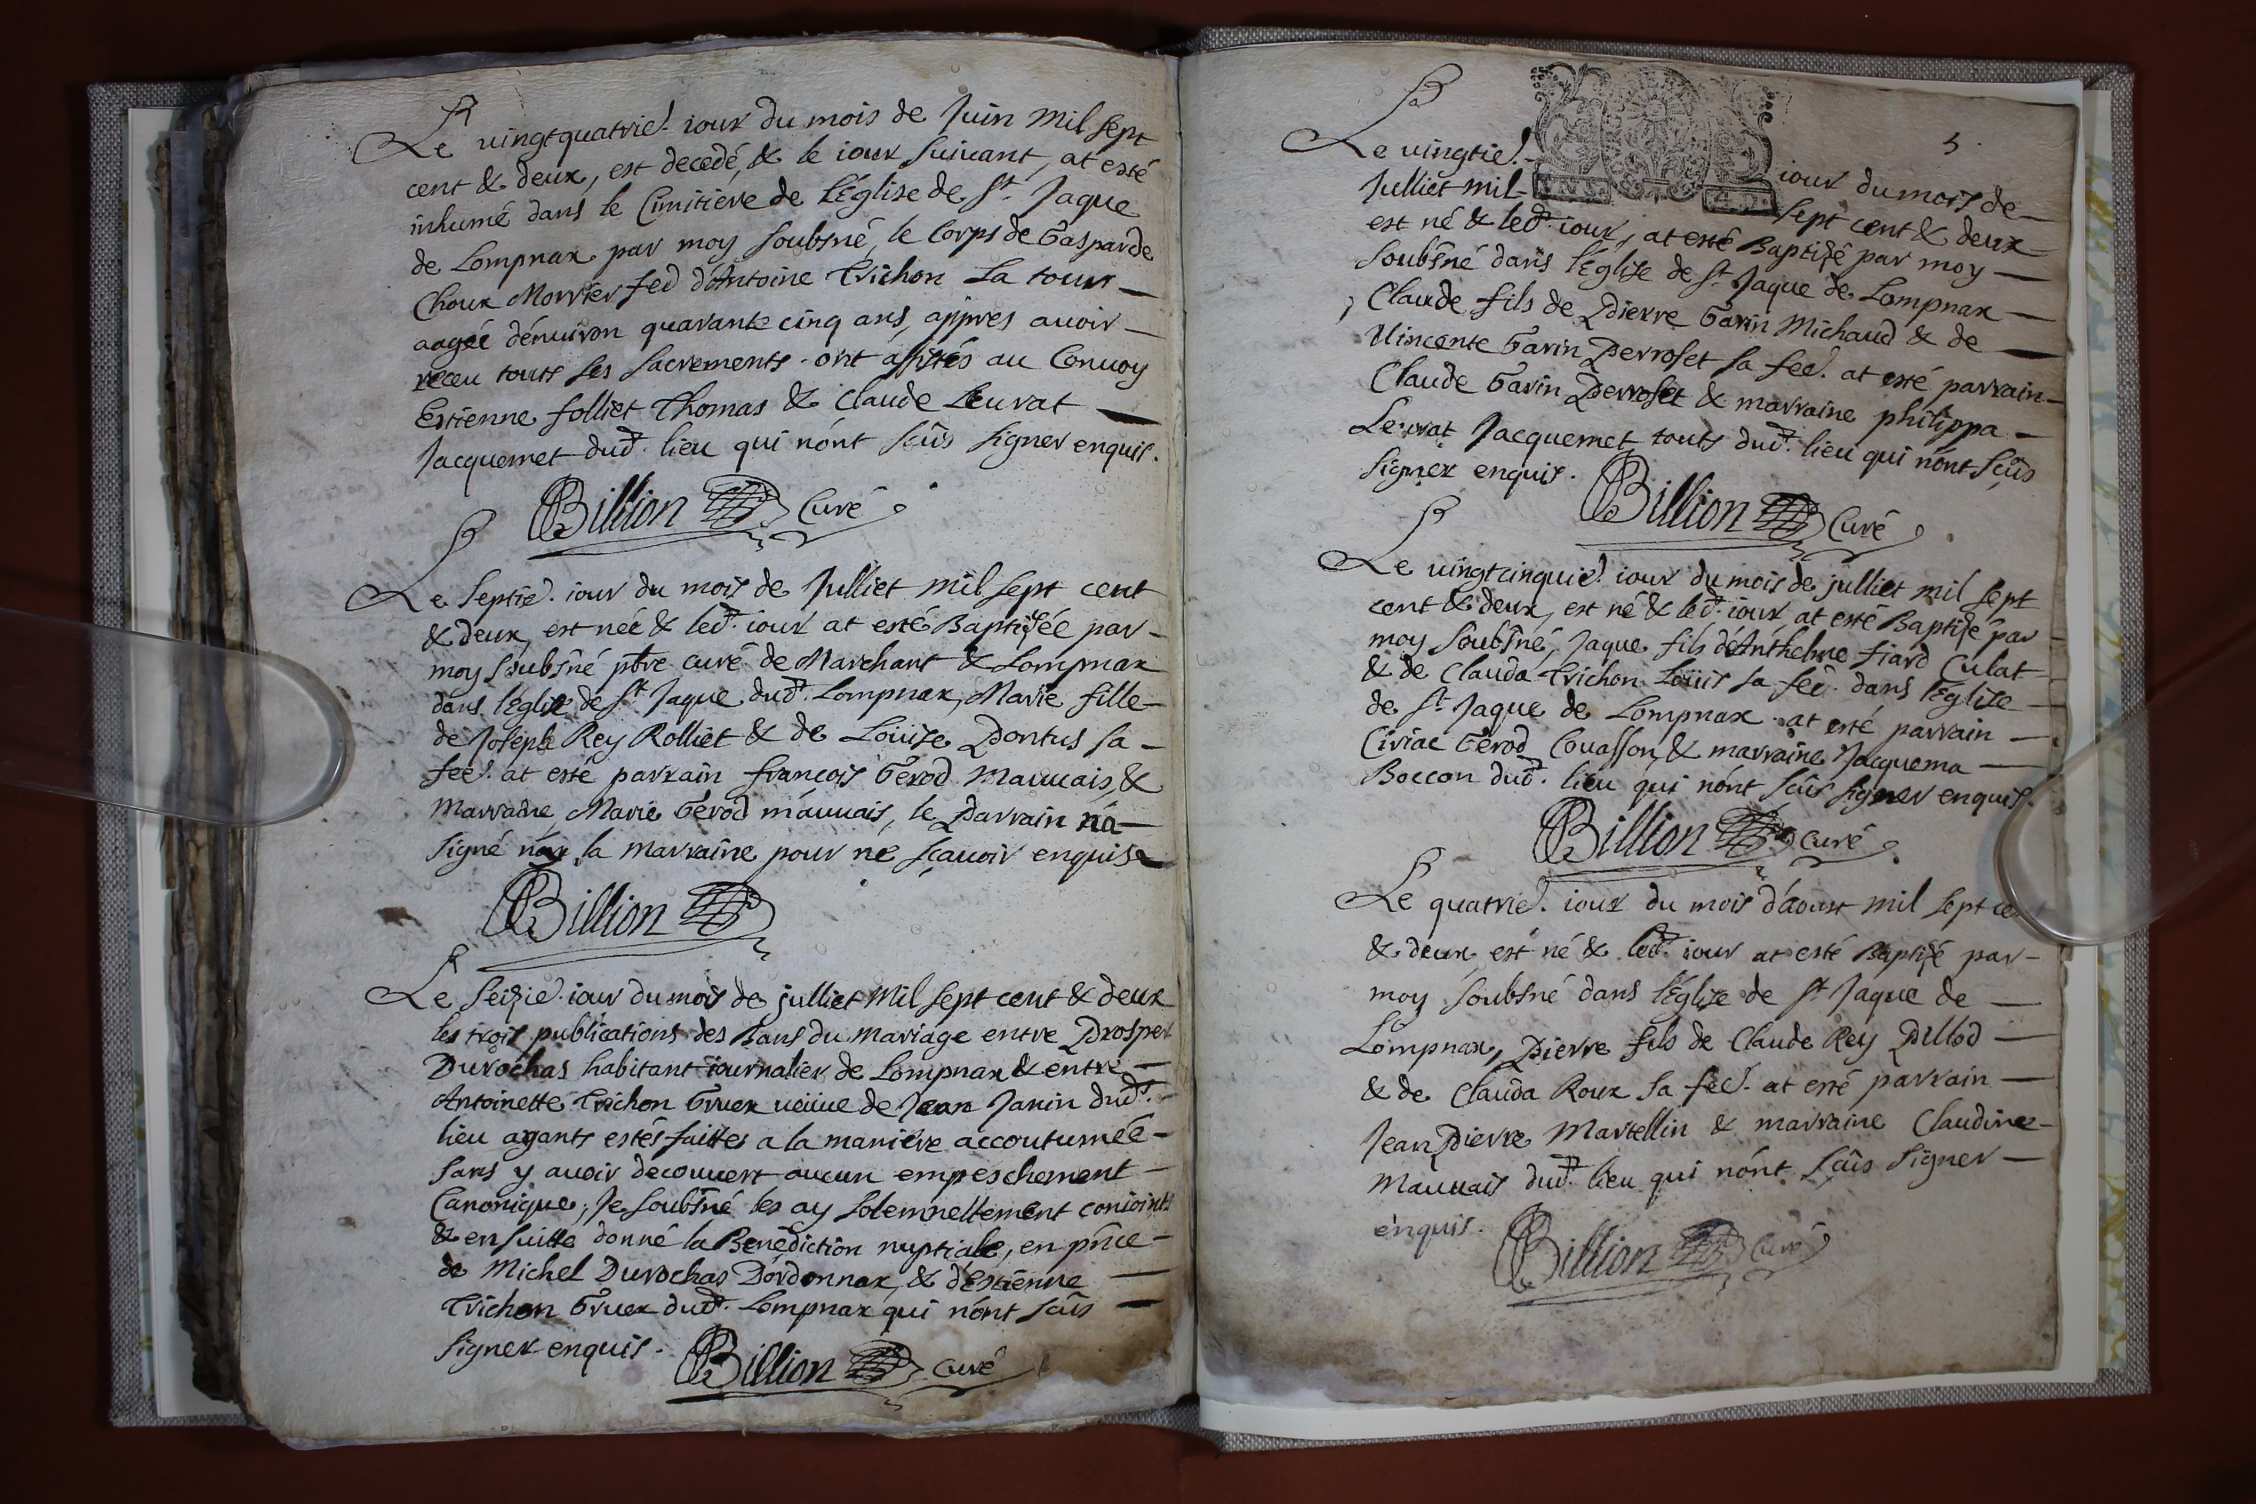 Le vingtquatrie. iour du mois de Juin mil sept
cent & deux, est decedé, & le iour suiuant, at esté
inhumé dans le Cimitière de l'Église de St. Jaque
de Lompnax par moy soubsné, le Corps de Gasparde
Choux Morrier fed d'Antoine Trichon La tour
aagée d'enuiron quarante cinq ans, appres auoir
receu touts ses sacrements. ont assistés au Conuoy
Estienne folliet Thomas & Claude Leurat
Jacquemet dud. lieu qui n'ont sçûs signer enquis.
Billion Curé
Le septie. iour du mois de Julliet mil sept cent
& deux, est née & led. iour at esté Baptisée par
moy soubsné ptre curé de Marchant & Lompnax
dans l'Église de St Jaque dud. Lompnax, Marie fille
de Joseph Rey Rolliet & de Loüise Pontus sa
fee. at esté parrain françois Gérod Mauuais, &
Marraine Marie Gérod mauuais, le Parrain na
signé non la marraine pour ne sçauoir enquise
Billion
Le seizie. iour du mois de julliet mil sept cent & deux
les trois publications des Bans du mariage entre Prosper
Durochas habitant iournalier de Lompnax & entre
Antoinette Trichon Gruex ueüue de Jean Janin dud.
lieu ayants estés faittes a la maniere accoutumée
sans y auoir decouuert aucun empeschement
Canonique, Je soubsné les ay solemnellement conioints
& ensuitte donné la Benediction nuptiale, en pnce
de Michel Durochas D'ordonnax, & d'Estienne
Trichon Gruex dud. Lompnax qui n'ont sçûs
signer enquis. Billion curé
5.
Le vingtie. iour du mois de
Julliet mil sept cent & deux
est né & led. iour, at esté Baptisé par moy
soubsné dans l'Église de St Jaque de Lompnax
Claude fils de Pierre Garin Michaud & de
Vincente Garin Perroset sa fee. at esté parrain
Claude Garin Perroset & marraine philippa
Leurat Jacquemet touts dud. lieu qui n'ont sçûs
signer enquis.
Billion Curé
Le vingtcinquie. iour du mois de julliet mil sept
cent & deux, est né & led. iour, at esté Baptisé par
moy soubsné, Jaque fils d'Anthelme fiard Culat
& de Clauda Trichon Loüis sa fee. dans l'Église
de St Jaque de Lompnax. at esté parrain
Ciriac Gérod Couasson, & marraine Jacquema
Boccon dud. lieu qui n'ont sçûs signer enquis.
Billion curé
Le quatrie. iour du mois d'aoust mil sept cent
& deux est né & led. iour at esté Baptisé par
moy soubsné dans l'Église de St Jaque de
Lompnax, Pierre fils de Claude Rey Pillod
& de Clauda Roux sa fee. at esté parrain
Jean Pierre Martellin & marraine Claudine
Mauuais dud. lieu qui n'ont sçûs signer
enquis.
Billion Curé